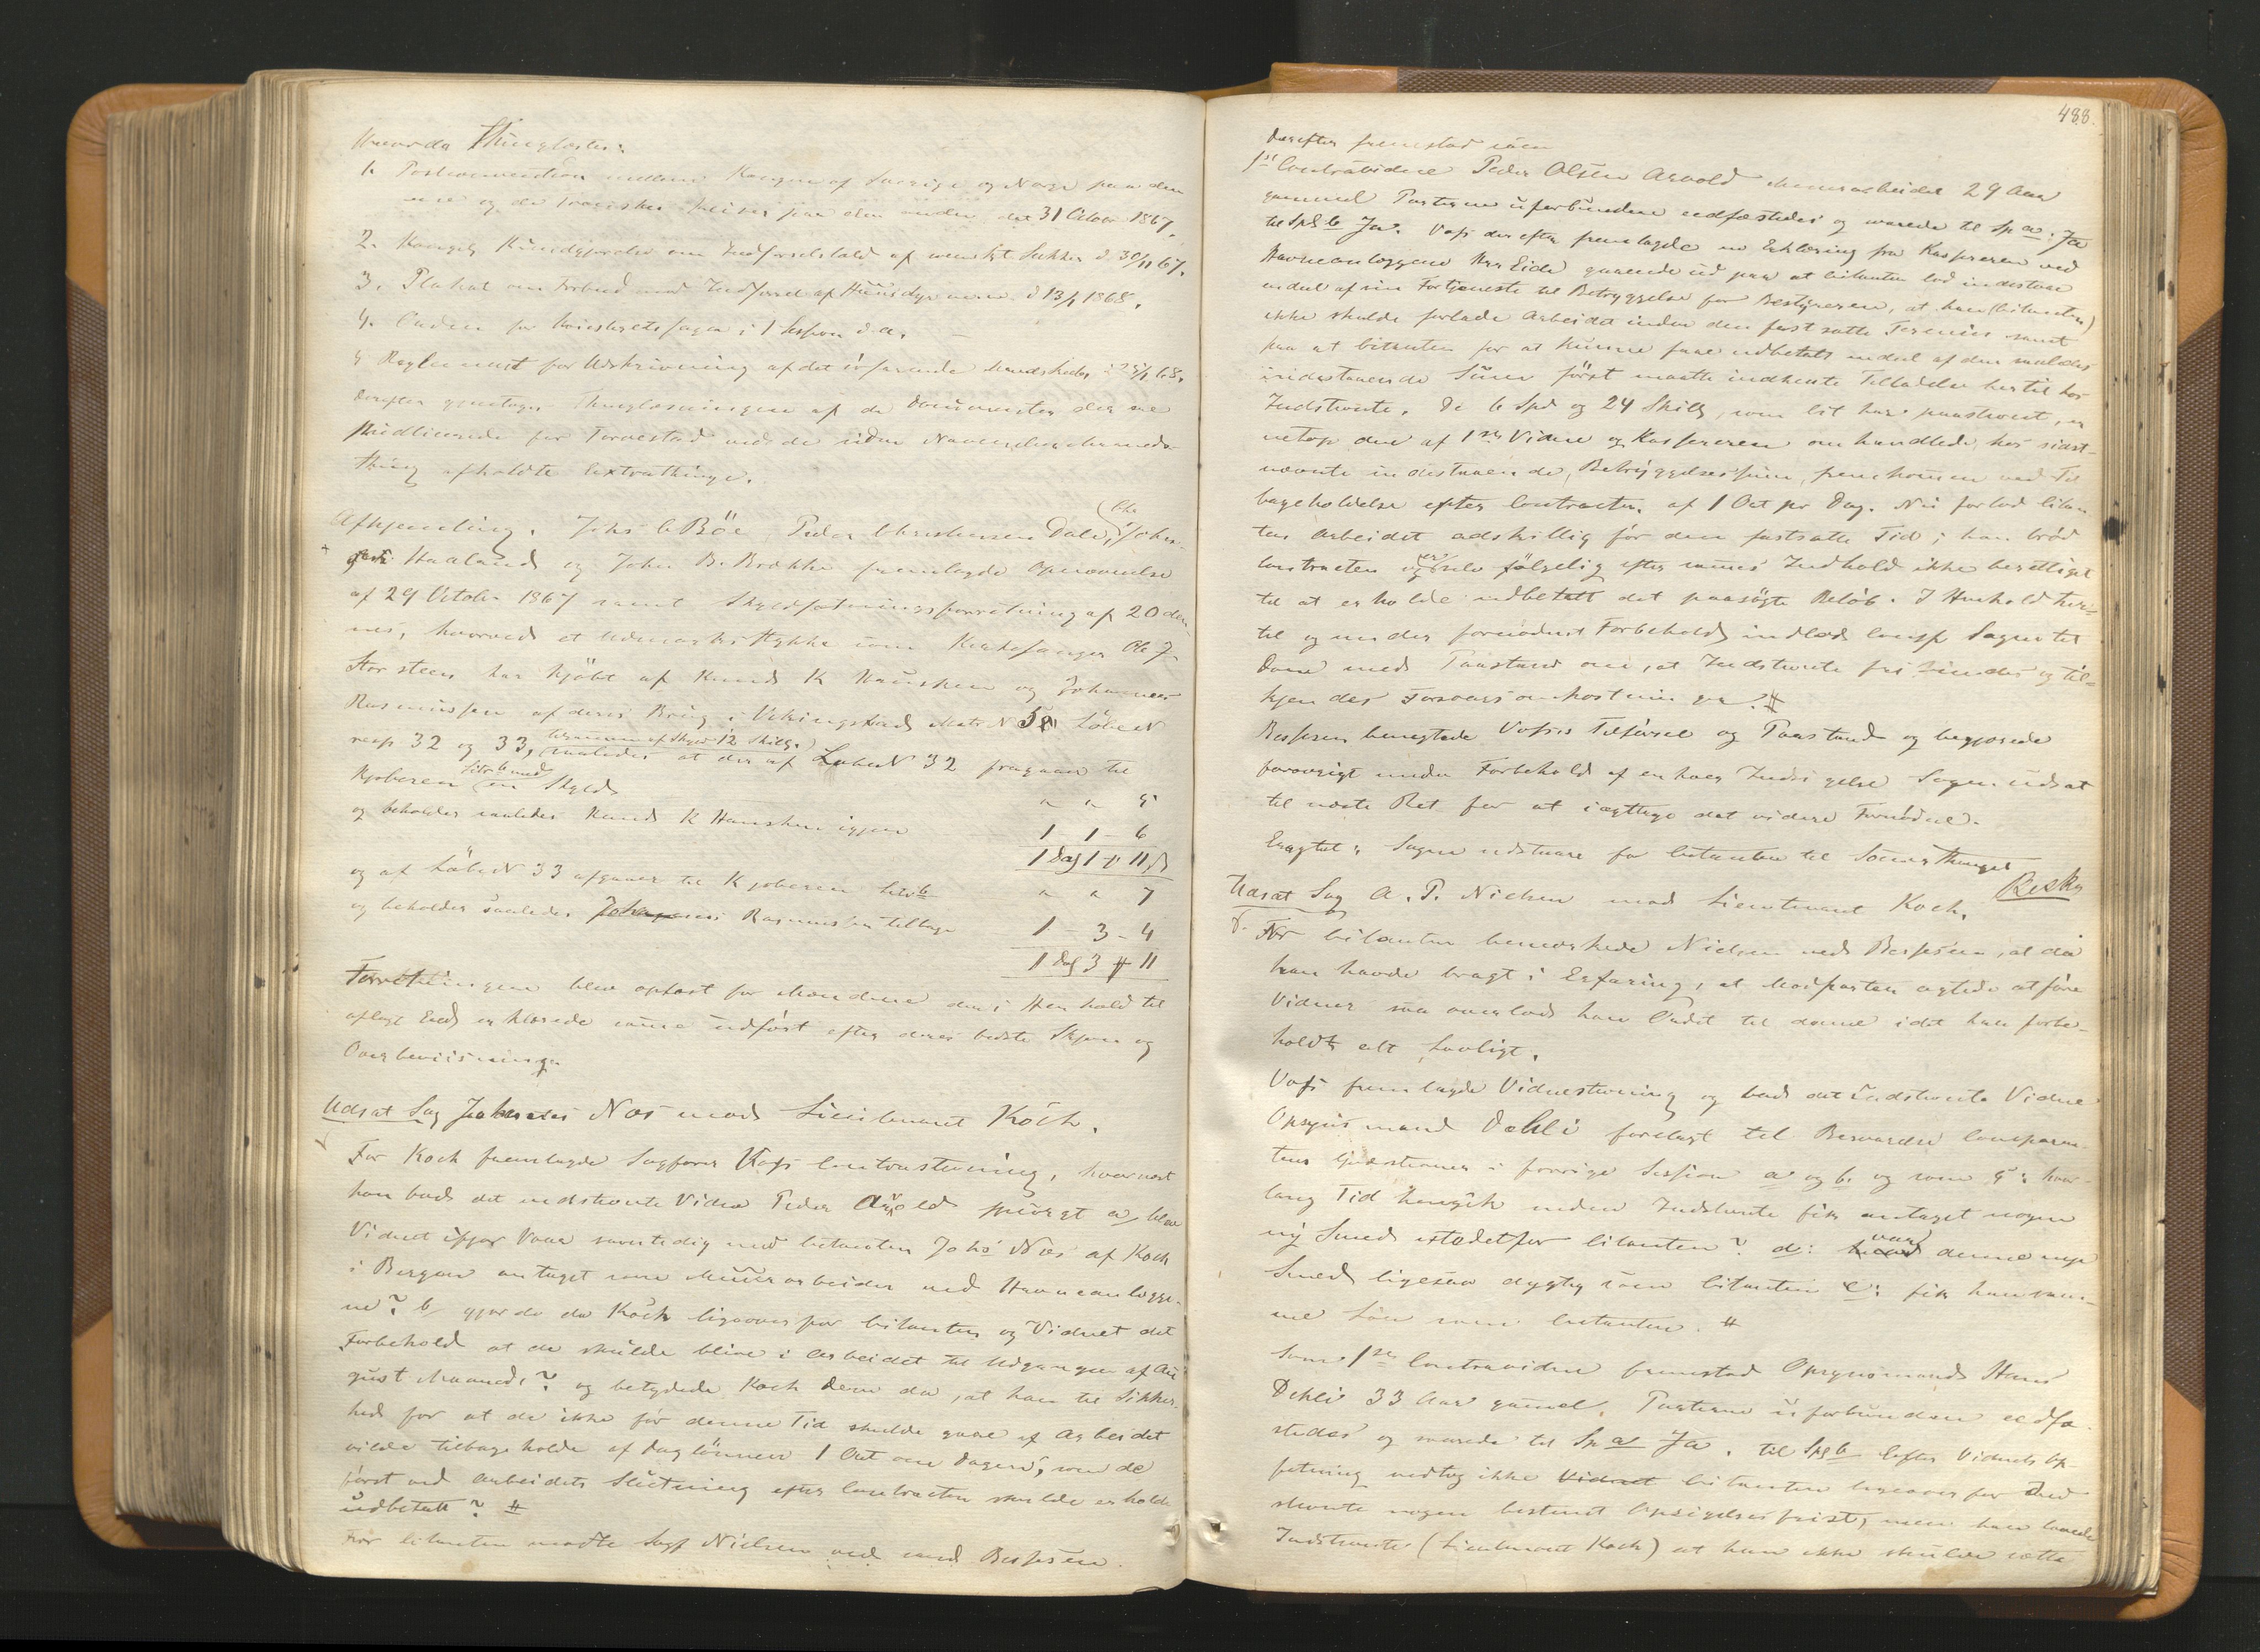 Hvorda Thinglæstes:
1. Postconvention mellem Kongen af Sverige og Norge paa den
ene og de preussiske paa den anden, dat 31 October 1867.
2. Kongelig Kundgjørelse om Indførselstold af Sukker d 30/11 67.
3. Plakat om Forbud mod Indførsel af Huusdyr d 13/1 1868.
4. Orden for Høiesteretssager i 1 Session d.a.
5 Reglement for Udskrivning af det søfarende Mandskab 68.
Derefter gjentoges Thinglæsningen af de Documenter der ere
publicerede for Torvestad ved de siden November Maaneds-
thing afholdte Extrathinge.
Afhjemling. Johs C Böe Peder Christensen Dale, Chr Johan-
nesen Haaland og John B. Brekke fremlagde Opnævnelse
af 29 October 1867 samt Skyldsætningsforretning af 20 den-
nes, hvorved et Udmarksstykke som Kirkesanger Ole J
Storsteen har kjöbt af Knud K Haugen og Johannes
Rasmussen af deres Brug i Vikingstad Matr N 58 LöbeN
resp 32 og 33, tilsammen af Skyld 12 Skilg. saaledes at der af LøbeN 32 fragaar til
Kjøberen Litr b med en Skyld " " 5
og beholder saaledes Knud K Haugen igjen 1 - 1 - 6
1 Dag 1 # 11 s
og af LöbeN 33 afgaaer til Kjøberen Litr b " " 7
og beholder saaledes Johannes Rasmussen tilbage 1 - 3 - 4
1 Dal 3 # 11
Forretningen blev oplæst for Mændene den i Henhold til
aflagt Eed erklærede samme udført efter deres bedste Skjøn og
Overbeviisning.
Udsat Sag Johannes Næs mod Lieutenant Koch.
For Koch fremlagde Sagfører Vogt Contrastevning, hvornæst
han bad det indstevnte Vidne Peder Arvold spurgt a, blev
Vidnet ifjor Vaar samtidig med Citanten Johs Næs af Koch
i Bergen antaget som Minerarbeider ved Havneanlægge-
ne? b gjorde da Koch ligeoverfor Citanten og Vidnet det
Forbehold at de skulde blive i Arbeidet til Udgangen af Au-
gust Maaned? og betydede Koch dem da, at han til Sikker-
hed for at de ikke før denne Tid skulde gaae af Arbeidet
vilde tilbageholde af Daglönnen 1 Ort om Dagen, som de
først ved Arbeidets Slutning efter Contracten skulde erholde
udbetalt? #
For Citanten mødte Sagf Nielsen ved Bessesen.
488.
Derefter fremstod som
1ste Contravidne Peder Olsen Arvold Minerarbeider 29 Aar
gammel Parterne uforbunden eedfæstedes og svarede til Sp a. Ja
til Sp b Ja. Vogt derefter fremlagde en Erklæring fra Kassereren ved
Havneanlæggene Hr Eide gaaende ud paa at Citanten lod indestaae
endeel af sin Fortjeneste til Betryggelse for Bestyreren, at han (Citanten)
ikke skulde forlade Arbeidet inden den fastsatte Termin samt
paa at Citanten for at kunne faae udbetalt endeel af den saaledes
indestaaende Sum først maatte indhente Tilladelse hertil hos
Indstevnte. De 6 Spd og 24 Skill, som Cit har paastevnt, er
netop den af 1ste Vidne og Kassereren omhandlede, hos sidst-
nævnte indestaaende, Betryggelsessum, fremkommen ved Til-
bageholdelse efter Contracten, af 1 Ort pr Dag. Nu forlod Citan-
ten Arbeidet adskillig før den fastsatte Tid; han brød
Contracten og er selv følgelig efter sammes Indhold ikke berettiget
til at erholde udbetalt det paasøgte Beløb. I Henhold her-
til og under fornødent Forbehold indlod Comp Sagen til
Dom med Paastand om, at Indstevnte frifindes og til-
kjendes Forsvarsomkostninger. #
Bessesen benegtede Vogts Tilførsel og Paastand og begjærede
forøvrigt under Forbehold af enhver Indsigelse Sagen udsat
til næste Ret for at iagttage det videre Fornødne.
Eragtet: Sagen udstaaer for Citanten til Sommerthinget
Beskr
Udsat Sag A. P. Nielsen mod Lieutenant Koch.
For Citanten bemærkede Nielsen ved Bessesen, at da
han havde bragt i Erfaring, at Modparten agtede at føre
Vidner saa overlod han Ordet til denne idet han forbe-
holdt alt Lovligt.
Vogt fremlagde Vidnestevning og bad det indstevnte Vidne
Opsynsmand Dehli forelagt til Besvarelse Comparen-
tens Qvæstioner i forrige Session a og b og som c: hvor-
lang Tid hengik inden Indstevnte fik antaget nogen
ny Smed istedetfor Citanten? d: var denne nye
Smed ligesaa dygtig som Citanten e: fik han sam-
me Løn som Citanten. #
Som 1ste Contravidne fremstod Opsynsmand Hans
Dehli 33 Aar gammel, Parterne uforbunden eedfæ-
stedes og svarede til Sp a Ja. til Sp b Efter Vidnets Op-
fatning vedtog ikke Vidnet Citanten ligeoverfor Ind-
stevnte nogen bestemt Opsigelsesfrist, men han lovede
Indstevnte (Lieutenant Koch) at han ikke skulde sætte